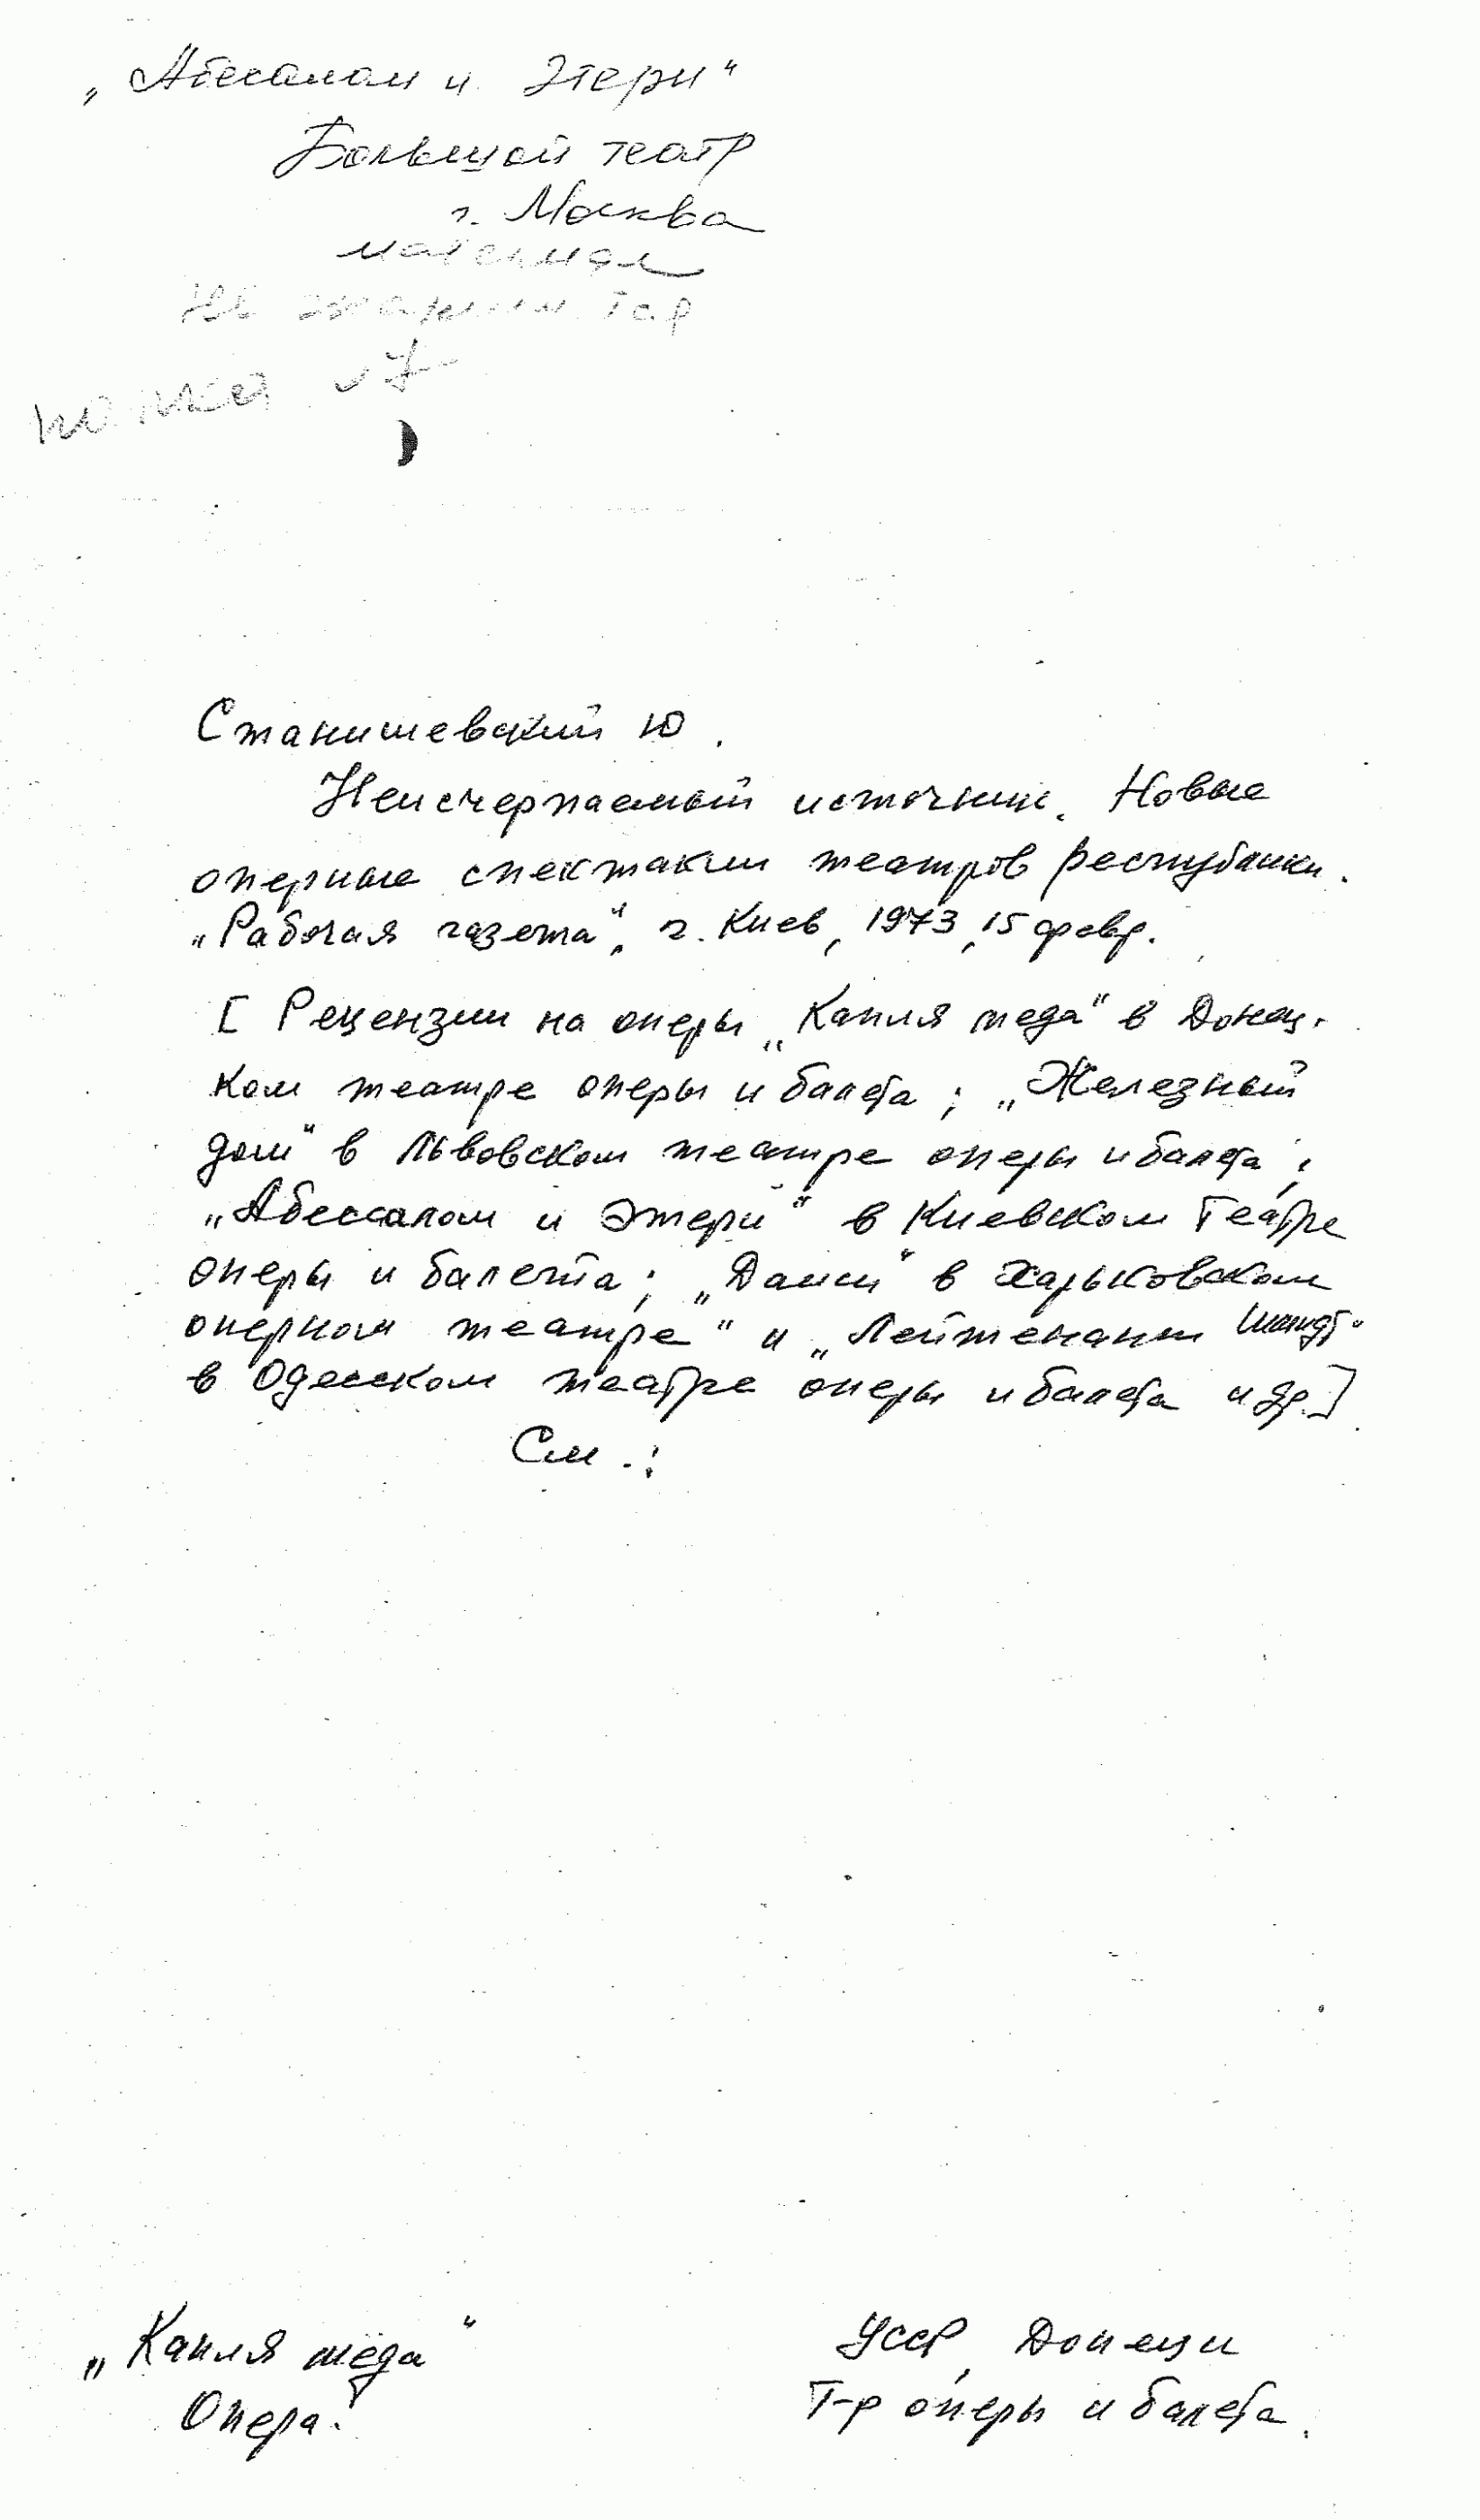 „Абесалом и Этери“
Большой театр
г. Москва
материал
не
Станишевский Ю.
Неисчерпаемый источник. Новые
оперные спектакли театров республики.
„Рабочая газета“, г. Киев, 1973, 15 февр.
[Рецензии на оперы „Капля меда“ в Донец-
ком театре оперы и балета; „Железный
дом“ в Львовском театре оперы и балета;
„Абессалом и Этери“ в Киевском театре
оперы и балета; „Даиси“ в Харьковском
оперном театре“ и „Лейтенант Шмидт“
в Одесском театре оперы и балета и др.]
См.:
„Капля мёда“
УССР, Донецк
Опера.
Т-р оперы и балета.